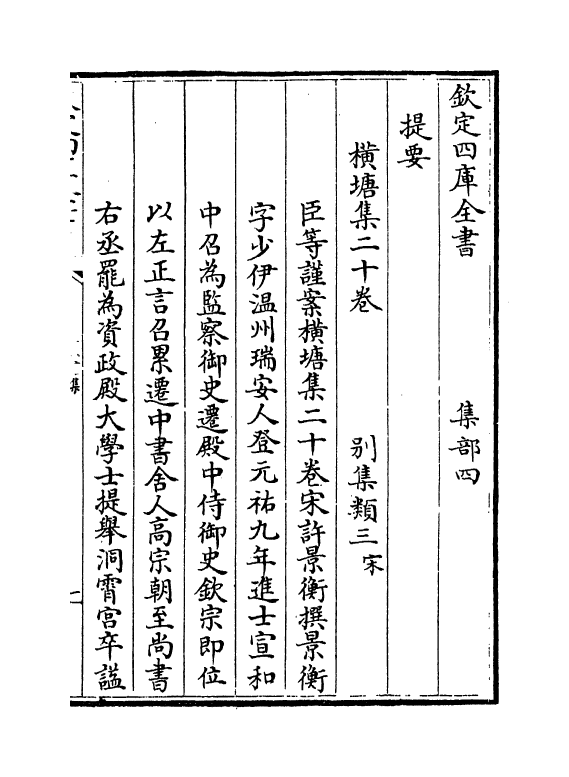 欽定四庫全書　集部四
提要
橫塘集二十卷　別集類三宋
臣等謹案橫塘集二十卷宋許景衡撰景衡
字少伊温州瑞安人登元祐九年進士宣和
中召為監察御史遷殿中侍御史欽宗即位
以左正言召累遷中書舍人高宗朝至尚書
右丞罷為資政殿大學士提舉洞霄宮卒謚